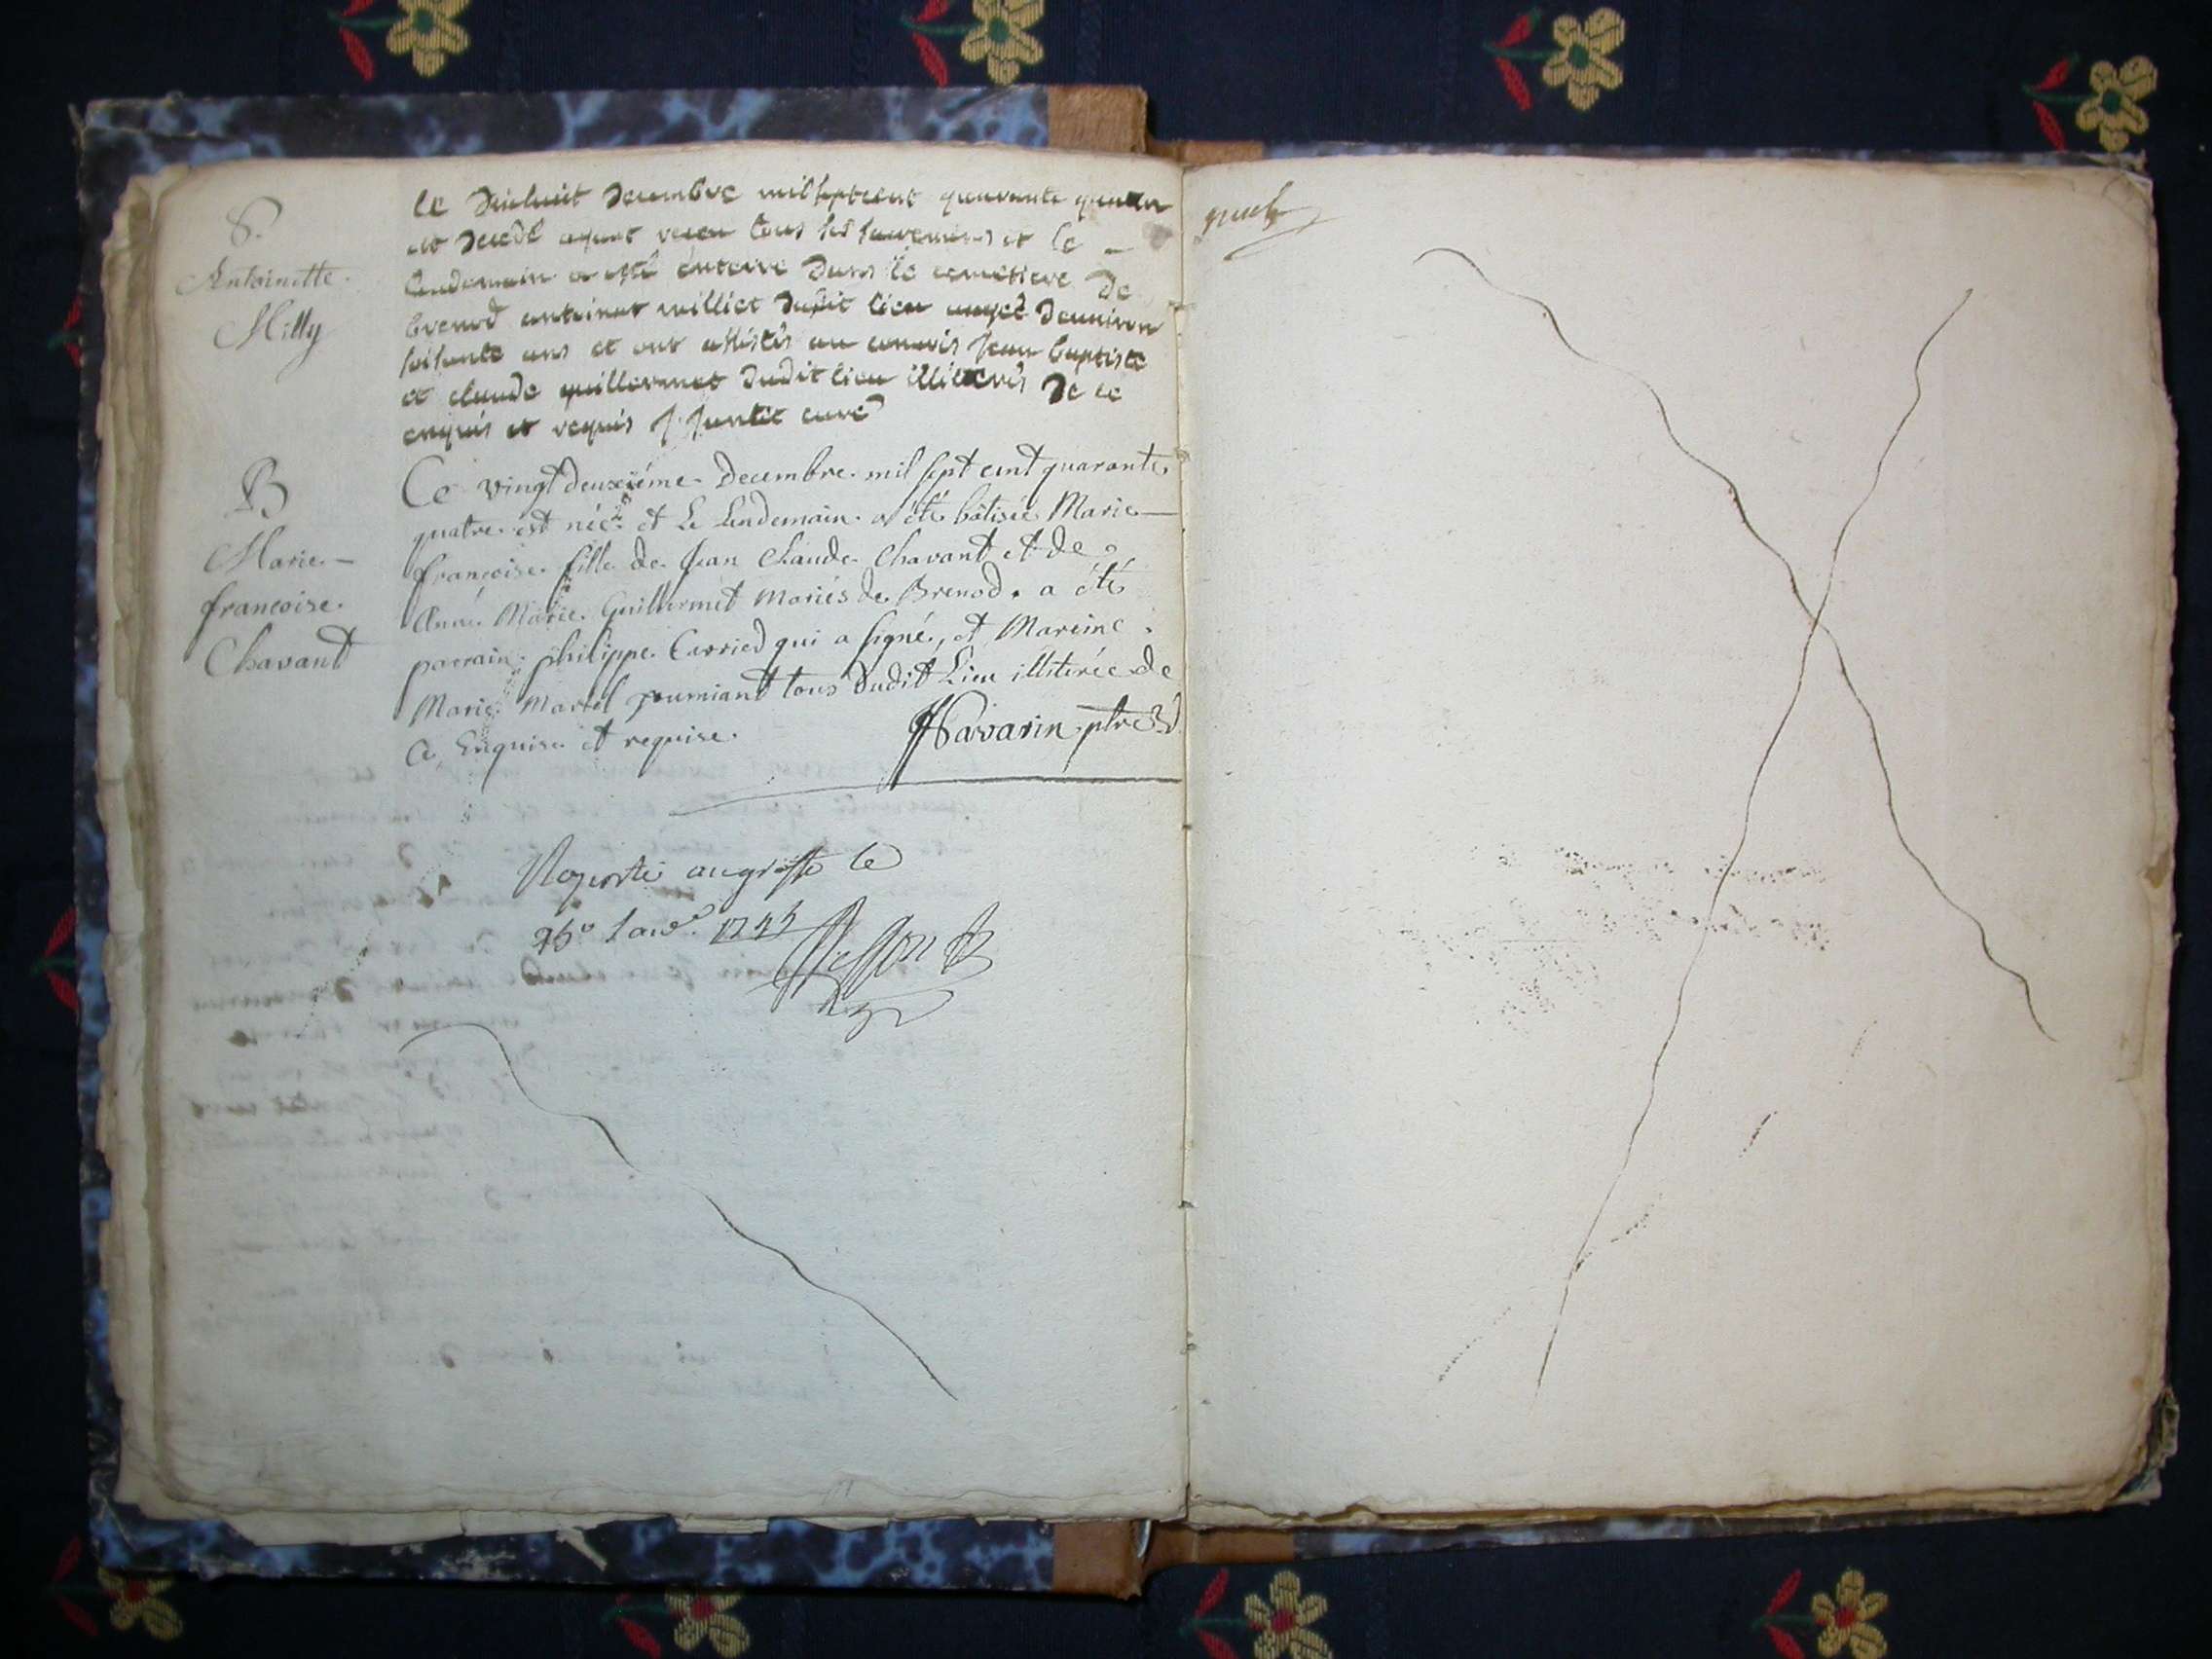 S.
Antoinette.
Milly
le dixhuit decembre mil sept cent quarante quatre
est decedé ayant receu tous ses sacremens et le
lendemain a esté enterré dans le cemetiere de
brenod antoinet milliet dudit lieu aageé denviron
soisante ans et ont assistés au convois jean baptiste
et claude guillermet dudit lieu illiterés de ce
enquis et requis curé
B
Marie -
francoise.
Chavant
Ce vingt deuxiéme. Decembre. mil sept cent quarante
quatre. est néé. et Le Lendemain. a été bâtisée Marie —
françoise. fille. de. Jean Claude. Chavant et de
Anne. Marie. Guillermet Mariés de Brenod. a été
parrain. philippe. Carried qui a signé, et Mareine
Marie. Martel tous dudit Lieu illiterée de
Ce Enquise et requise.
Navarin ptre
Raporté au greffe le
26e Janvr. 1745